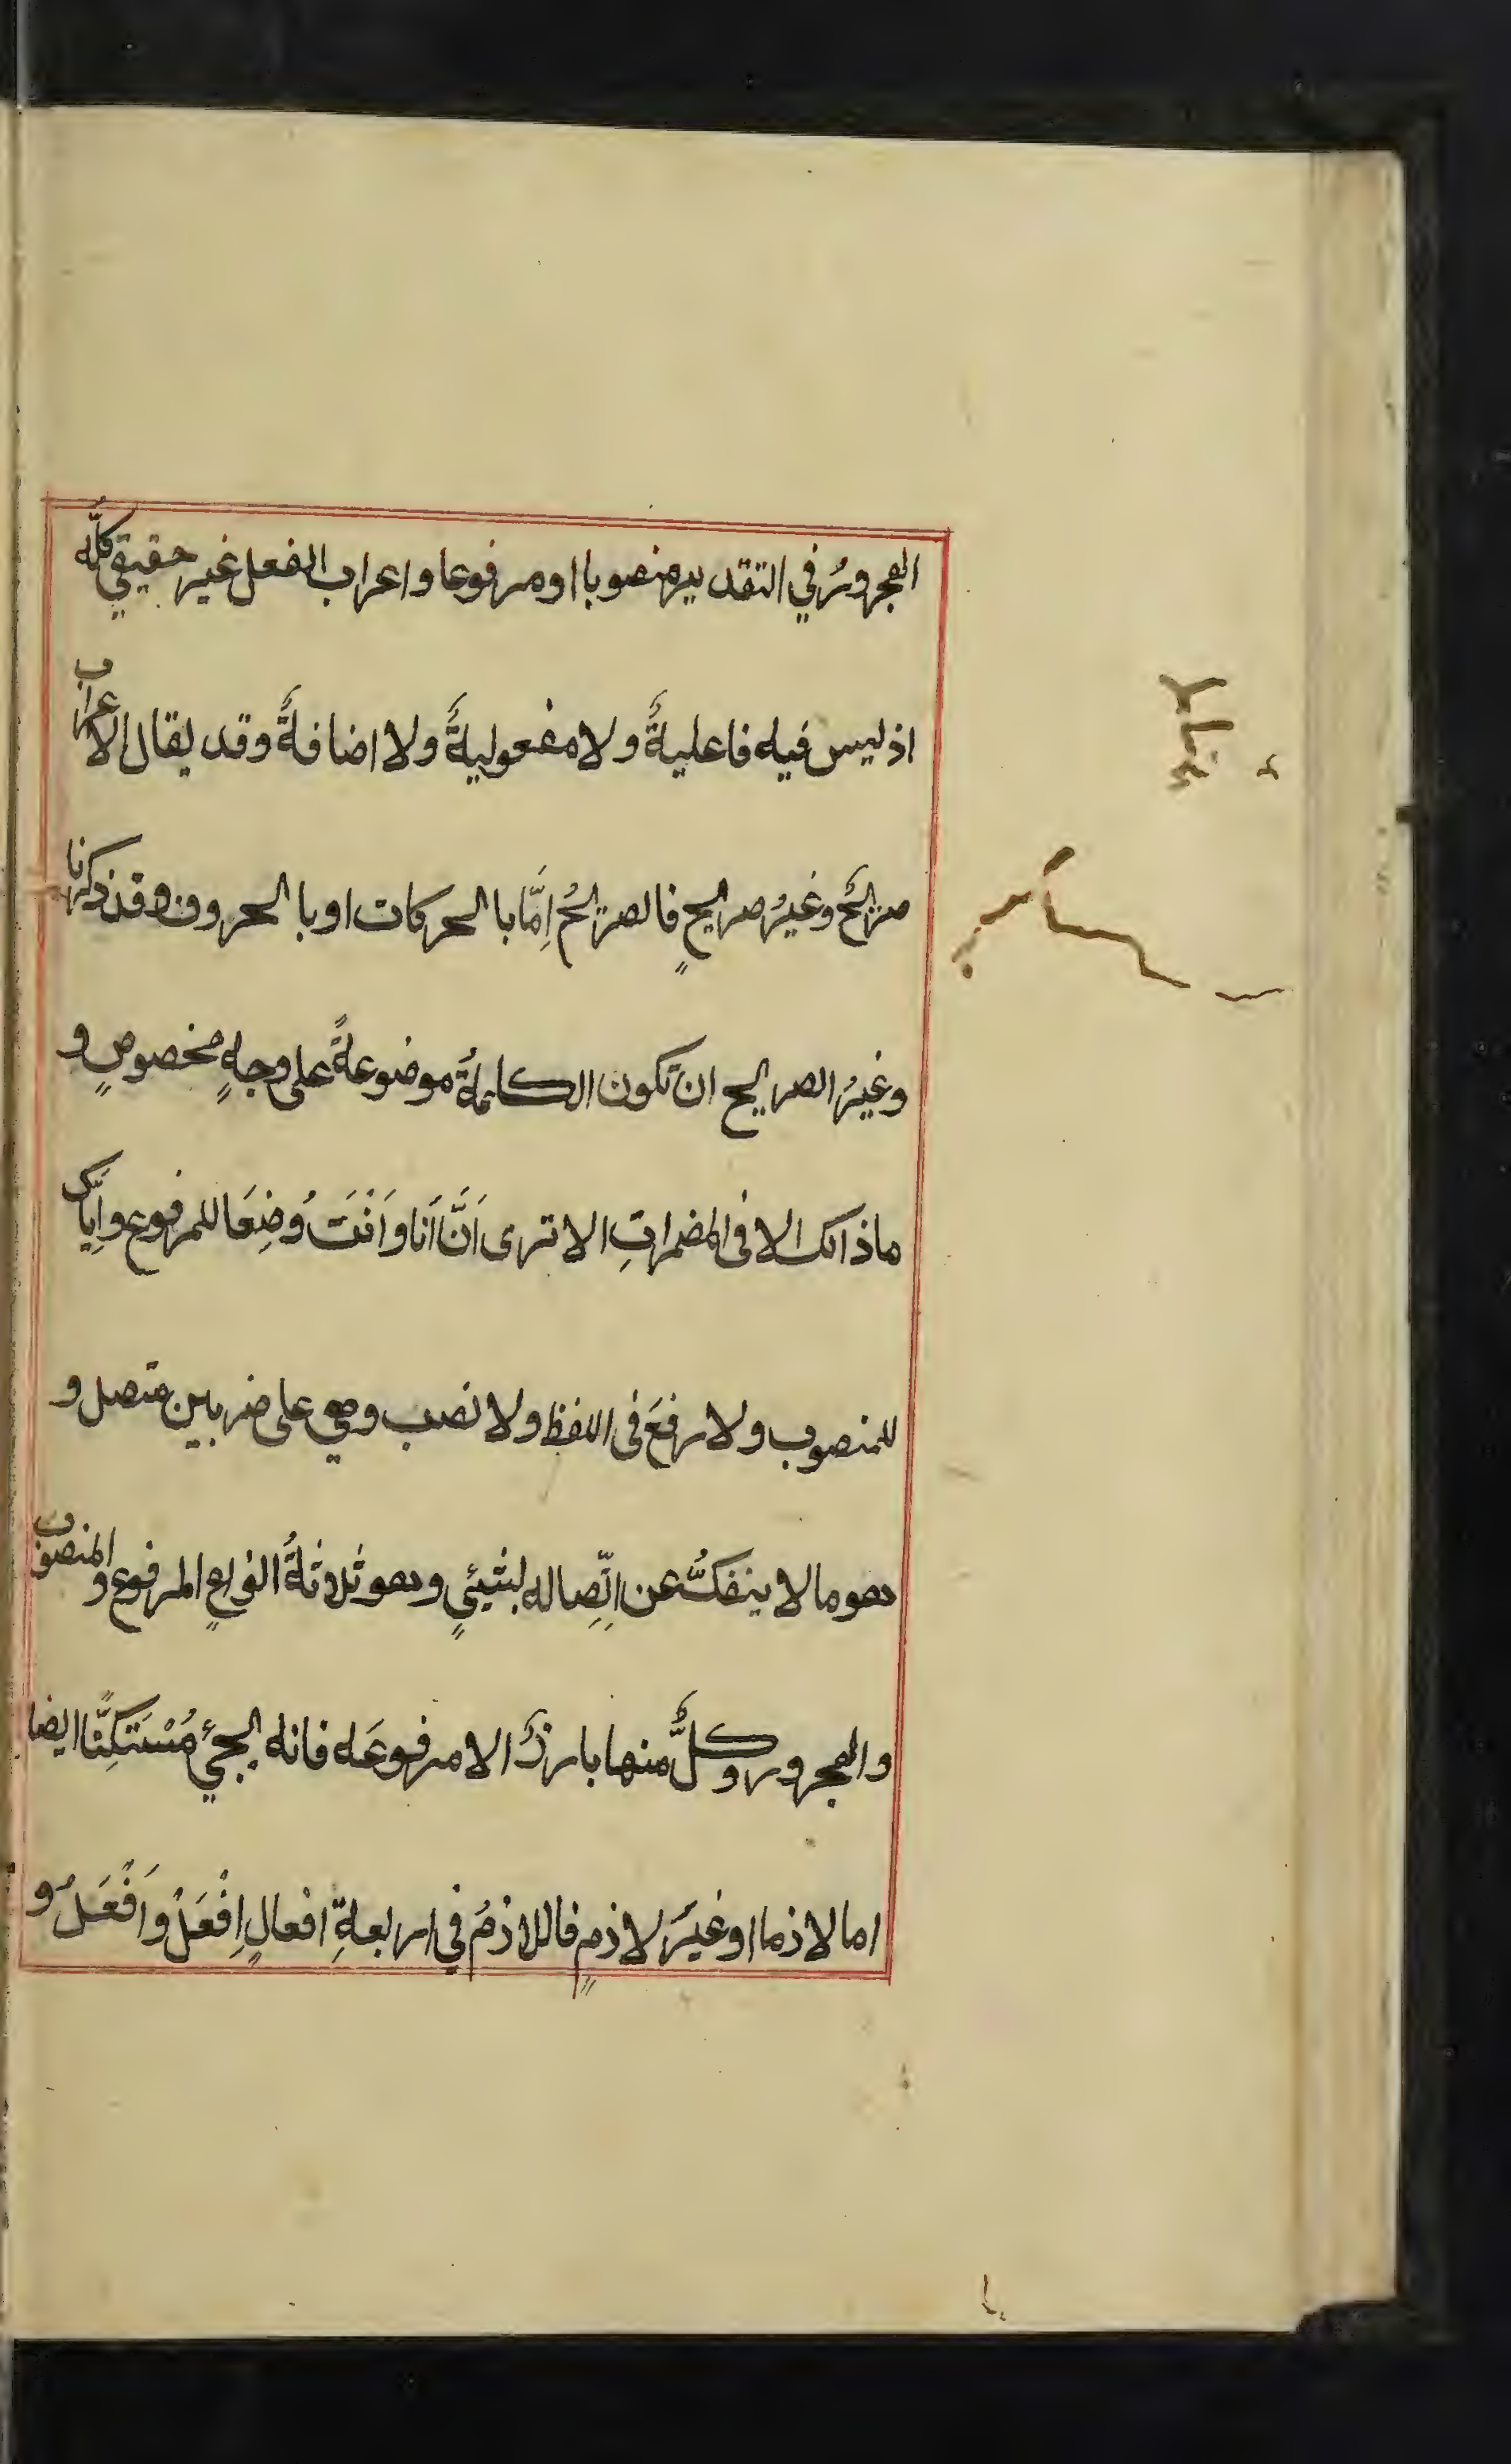 المجرورُ في التقدير منصوبا او مرفوعا واعراب الفعل غير حقيقي كلّه
اذ ليس فيه فاعليةٌ ولا مفعوليةٌ ولا اضافةٌ وقد يقال الاعراب
صريحٌ وغيرُ صريحٍ فالصريحُ اِمّا بالحركات او بالحروف وقد ذكرنا
وغيرُ الصريح ان تكون الكلمةُ موضوعةً على وجهٍ مخصوصٍ و
ما ذالك الا في المضمراتِ الا ترى اَنَّ اَنا واَنْتَ وُضِعَا للمرفوع واِيّاك
للمنصوب ولا رفعَ في اللفظ ولا نصب وهي على ضربين متصل و
هو ما لا ينفكُّ عن اِتّصِاله لشيئٍ وهو ثلاثةُ انواعٍ المرفوع والمنصوب
والمجرور وكلٌّ منها بارزٌ الا مرفوعَه فانه يجئ مُسْتَكِنًّا ايضا
اما لازما او غيرَ لازمٍ فاللازمُ في اربعةِ افعالٍ اِفْعَلْ واَفْعَلُ و